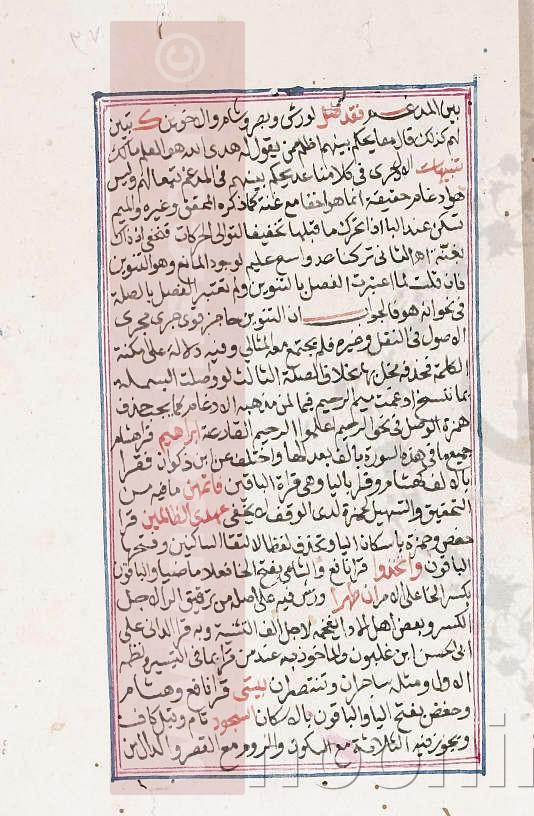 بين المدغم فقد ضل لورش وبصر وشام والاخوين كـ بين
انم كذلك قال معا يحكم بينهم اظلم ممن يقول له هدى الله هو العلم مالك
تنبيهات الاول جرى في كلامنا عد يحكم بينهم في المدغم تبعا لهم وليس
هو ادغام حقيقة انما هو اخفا مع غنة كما ذكره المحقق وغيره والميم
تسكن عند البا اذا تحرك ما قبلها تخفيفا لتوالي الحركات فتخفى اذ ذاك
بغنة اهـ الثاني تركنا عد واسع عليم لوجود المانع وهو التنوين
فان قلت لما اعتبرت الفصل بالتنوين ولم تعتبر الفصل بالصلة
في نحو انه هو فالجواب ان التنوين حاجز قوي جرى مجرى
الاصول في النقل وغيره فلم يجتمع معه المثلان وفيه دلالة على مكنة
الكلمة فحذفه مخل بها بخلاف الصلة الثالث لو وصلت البسملة
بما ننسخ ادغمت ميم الرحيم فيما لمن مذهبه الادغام كما يجب حذف
همزة الوصل في نحو الرحيم اعلموا الرحيم القارعة ابراهيم قرا هشام
جميع ما في هذه السورة بالف بعد الها واختلف عن ابن ذكوان فقرا
بالالف كهشام وقرا باليا وهي قراة الباقين فاتمهن ما فيه من
التحقيق والتسهيل لحمزة لدى الوقف لا يخفى عهدي الظالمين قرا
حفص وحمزة باسكان اليا وتحذف لفظا لالتقا الساكنين وفتحها
الباقون واتخذوا قرا نافع والشامي بفتح الخا فعلا ماضيا والباقون
بكسر الخا على الامر ان طهرا ورش فيه على اصله من ترقيق الرا لاجل
الكسر وبعض اهل الادا فخمه لاجل الف التثنية وبه قرا الداني على
ابي الحسن ابن غلبون والماخوذ به عند من قرا بما في التيسير ونظمه
الاول ومثله ساحران وتنتصران بيتي قرا نافع وهشام
وحفص بفتح اليا والباقون بالاسكان السجود تام وقيل كاف
ويجوز فيه الثلاثة مع السكون والروم مع القصر والذال من